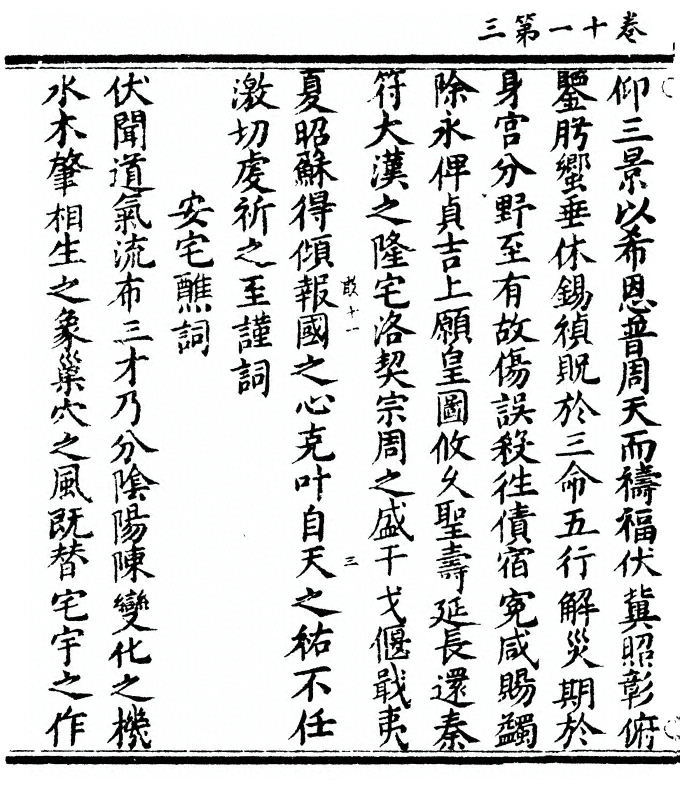 卷十一第三
仰三景以希恩普周天而禱福伏冀昭彰俯
鑒肹蠁垂休錫禎貺於三命五行解災期於
身宮分野至有故傷誤殺徃債宿寃咸賜蠲
除永俾貞吉上願皇圖攸久聖壽延長還秦
符大漢之隆宅洛契宗周之盛干戈偃戢夷
敢十一 三
夏昭蘇得傾報國之心克叶自天之祐不任
激切虔祈之至謹詞
安宅醮詞
伏聞道氣流布三才乃分陰陽陳變化之機
水木肇相生之象巢穴之風既替宅宇之作